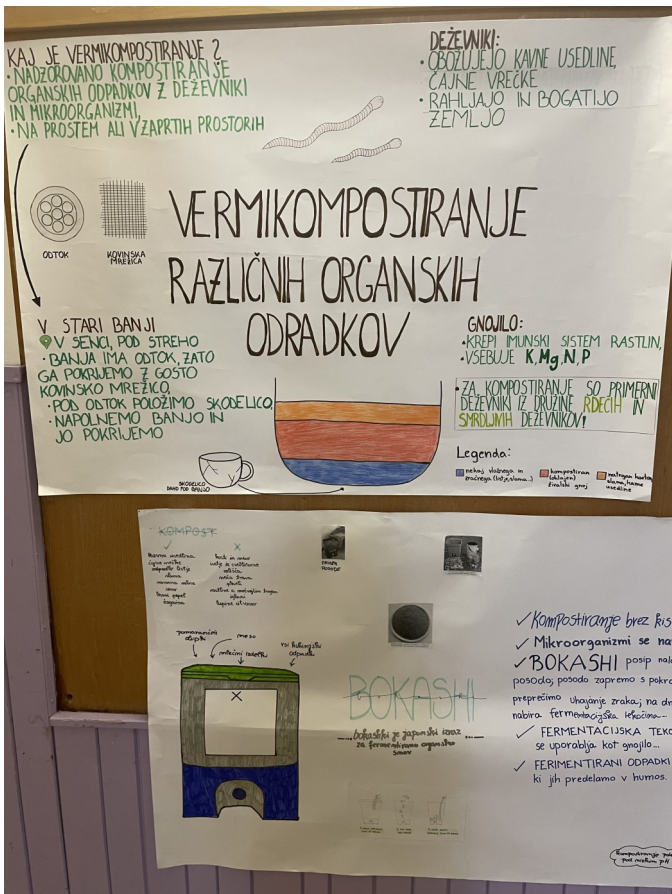 KAJ JE VERMIKOMPOSTIRANJE?
• NADZOROVANO KOMPOSTIRANJE
ORGANSKIH ODPADKOV Z DEŽEVNIKI
IN MIKROORGANIZMI,
• NA PROSTEM ALI V ZAPRTIH PROSTORIH
DEŽEVNIKI:
• OBOŽUJEJO KAVNE USEDLINE,
ČAJNE VREČKE
• RAHLJAJO IN BOGATIJO
ZEMLJO
ODTOK
KOVINSKA
MREŽICA
VERMIKOMPOSTIRANJE
RAZLIČNIH ORGANSKIH
ODRADKOV
V STARI BANJI
V SENCI, POD STREHO
• BANJA IMA ODTOK, ZATO
GA POKRIJEMO Z GOSTO
KOVINSKO MREŽICO,
• POD ODTOK POLOŽIMO SKODELICO,
• NAPOLNEMO BANJO IN
JO POKRIJEMO
GNOJILO:
• KREPI IMUNSKI SISTEM RASTLIN,
• VSEBUJE K, Mg, N, P
• ZA KOMPOSTIRANJE SO PRIMERNI
DEŽEVNIKI IZ DRUŽINE RDEČIH IN
SMRDLJIVIH DEŽEVNIKOV!
Legenda:
nekaj vlažnega in
zračnega (listje, slama..)
kompostiran
(ohlajen)
živalski gnoj
slama, kavne
usedline
SKODELICO
DAMO POD BANJO
KOMPOST
✓ X
pomarančni
olupki
meso
mlečni izdelki
vsi kuhinjski
odpadki
X
BOKASHI
bokashi je japonski izraz
za fermentirano organsko
snov
✓ Kompostiranje brez kis
✓ Mikroorganizmi se na
✓ BOKASHI posip nal
posodo; posodo zapremo s pokro
preprečimo uhajanje zraka; na dn
nabira fermentacijska tekočina...
✓ FERMENTACIJSKA TEKO
se uporablja kot gnojilo...
✓ FERIMTIRANI ODPADKI
ki jih predelamo v humos.